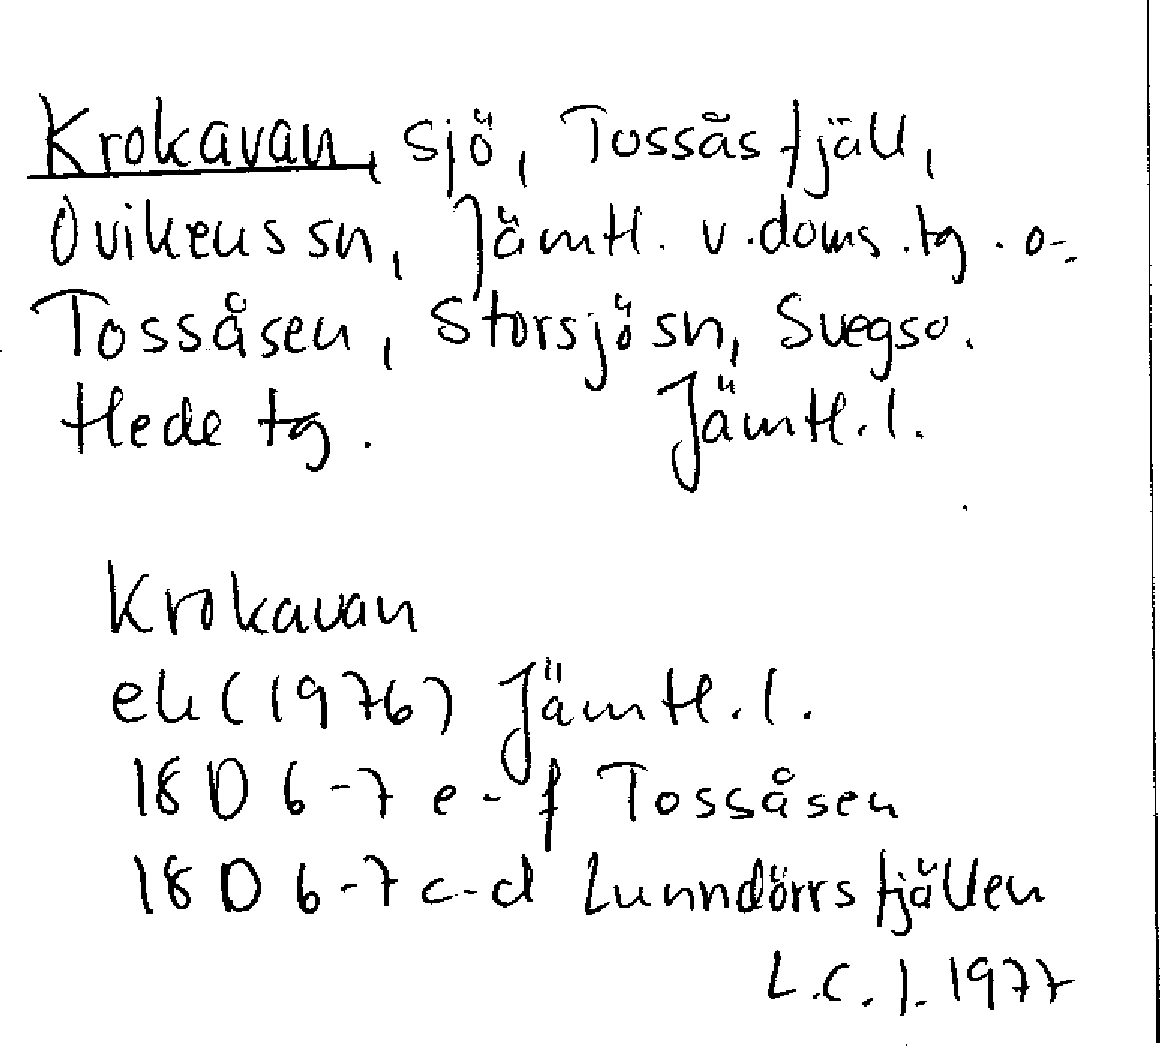 Krokavan, sjö, Tossåsfjäll,
Ovikens sn, Jämtl. v. doms. tg. o.
Tossåsen, Storsjö sn, Svegs o.
Hede tg. Jämtl. l.
Krokavan
ek (1976) Jämtl. l.
18 D 6-7 e-f Tossåsen
18 D 6-7 c-d Lunndörrsfjällen
L.C.J. 1977